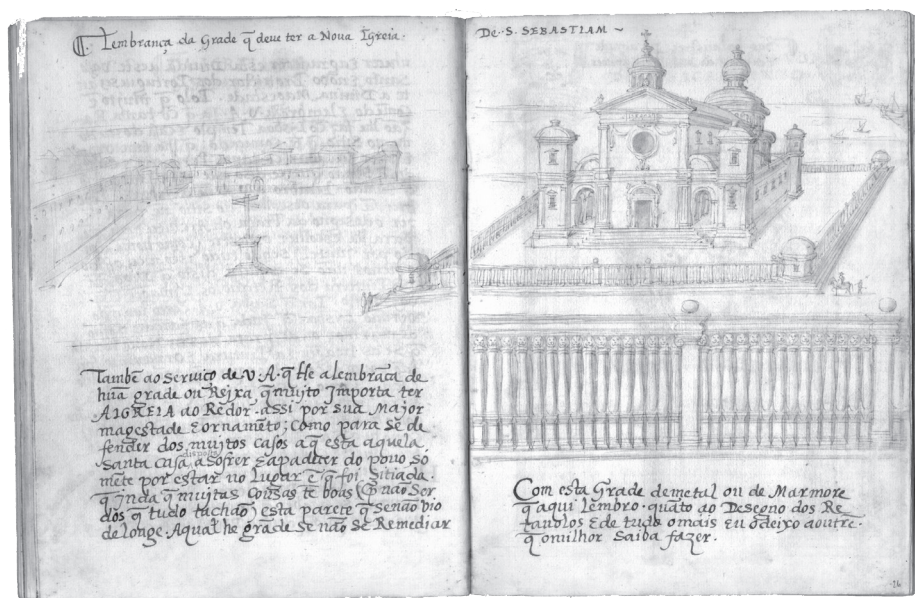 Lembrança da Grade q̃ deve ter a Nova Igreia.
Tambẽ ao Serviço de V.A. q̃ He a lembrãça de
hũa grade ou Reixa, q̃ mujto Jmporta ter
AIGREIA ao Redor. assi por sua Major
magestade E ornamẽto; como para se de
fender dos mujtos casos aq̃ esta aquela
Santa Casa disposta a Sofrer E apadecer do povo só
mẽte por estar no Lugar ẽ q̃ foi Sitiada.
q̃ jnda q̃ mujtas Cousas tẽ boas (E não Ser
dos q̃ tudo tachão) esta parece q̃ Senão vio
de longe. Aqual he grãde Se não Se Remediar
DE. S. SEBASTIAM ~
Com esta Grade de metal ou de Marmore
q̃ aqui Lembro. quãto ao Desegno dos Re
tavolos E de tudo o mais Eu o deixo a outrẽ.
q̃ o milhor Saiba fazer.